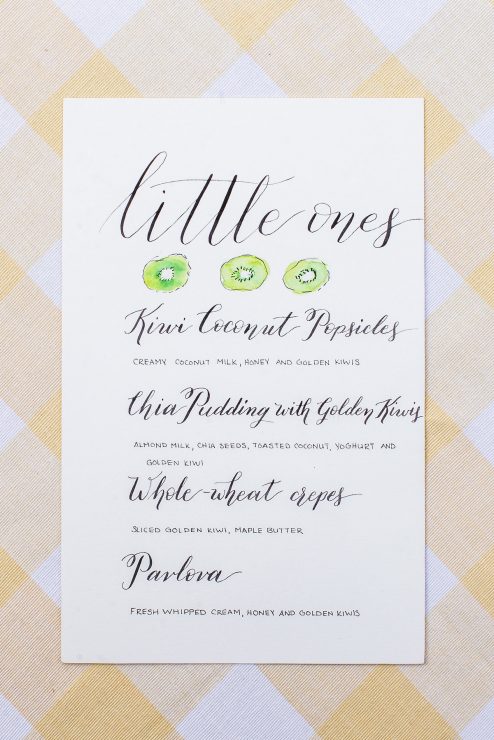 little ones
Kiwi Coconut Popsicles
CREAMY COCONUT MILK, HONEY AND GOLDEN KIWIS
Chia Pudding with Golden Kiwis
ALMOND MILK, CHIA SEEDS, TOASTED COCONUT, YOGHURT AND
GOLDEN KIWI
Whole-wheat crepes
SLICED GOLDEN KIWI, MAPLE BUTTER
Pavlova
FRESH WHIPPED CREAM, HONEY AND GOLDEN KIWIS